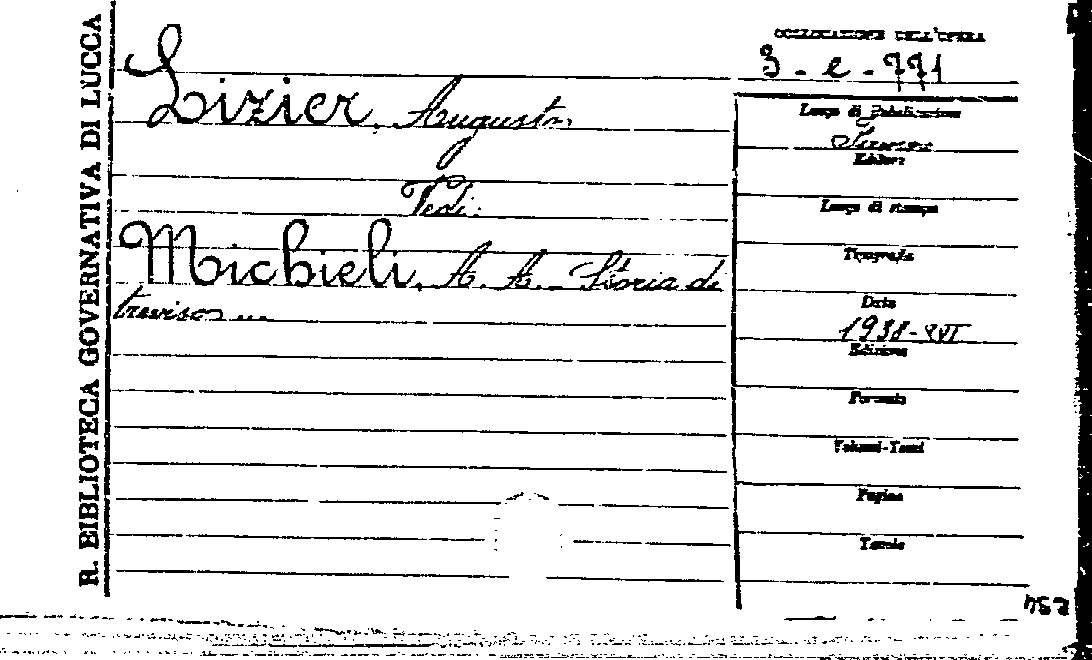 R. BIBLIOTECA GOVERNATIVA DI LUCCA
COLLOCAZIONE DELL'OPERA
3 - e - 771
Lizier, Augusto,
Vedi:
Michieli, A. A. - Storia di
treviso ...
Luogo di Pubblicazione
Firenze
Editore
Luogo di stampa
Tipografia
Data
1938-XVI
Edizione
Formato
Volumi-Tomi
Pagine
Tavole